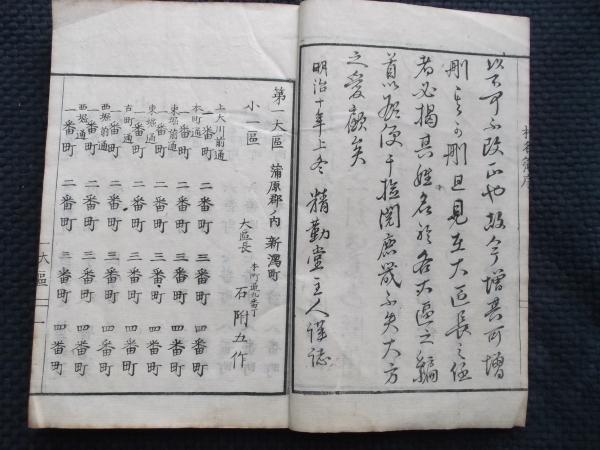 村名簿序
以不可不改正也故今増其可増
刪其可刪且見在大区長之任
者必掲其姓名於各大區之編
首以為便于撿閲庶幾不失大方
之愛顧矣
明治十年上冬 精勤堂主人謹誌
第一大區 蒲原郡ノ内 新潟町
小一區
大區長 本町通九番丁 石附五作
上大川前通 一番町 二番町 三番町 四番町
本町通 一番町 二番町 三番町 四番町
東堀前通 一番町 二番町 三番町 四番町
東堀通 一番町 二番町 三番町 四番町
古町通 一番町 二番町 三番町 四番町
西堀前通 一番町 二番町 三番町 四番町
西堀通 一番町 二番町 三番町 四番町
一大區 一